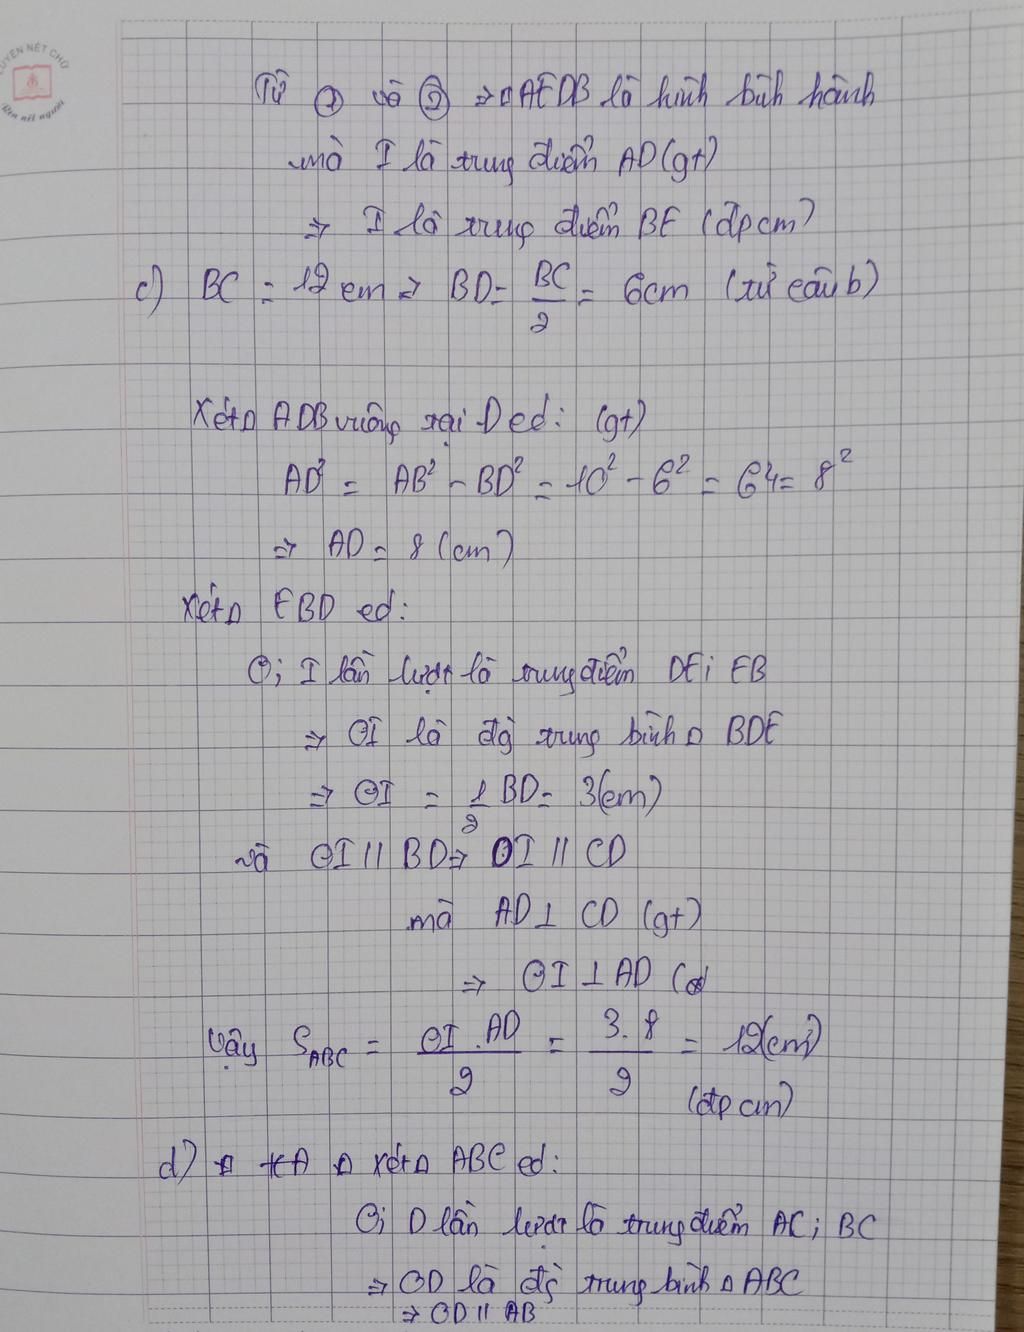 LUYỆN NÉT CHỮ
Rèn nết người
Từ ① và ② ⇒ □AEDB là hình bình hành
mà I là trung điểm AD (gt)
⇒ I là trung điểm BE (đpcm)
c) BC = 12 cm ⇒ BD = BC/2 = 6cm (từ câu b)
Xét Δ ADB vuông tại D có: (gt)
AD² = AB² - BD² = 10² - 6² = 64 = 8²
⇒ AD = 8 (cm)
Xét Δ EBD có:
O; I lần lượt là trung điểm DE; EB
⇒ OI là đg̀ trung bình Δ BDE
⇒ OI = 1/2 BD = 3(cm)
và OI // BD ⇒ OI // CD
mà AD ⊥ CD (gt)
⇒ OI ⊥ AD (
Vậy S_ABC = OI . AD / 2 = 3. 8 / 2 = 12(cm²)
(đpcm)
d) Xét Δ ABC có:
O; D lần lượt là trung điểm AC; BC
⇒ OD là đg̀ trung bình Δ ABC
⇒ OD // AB